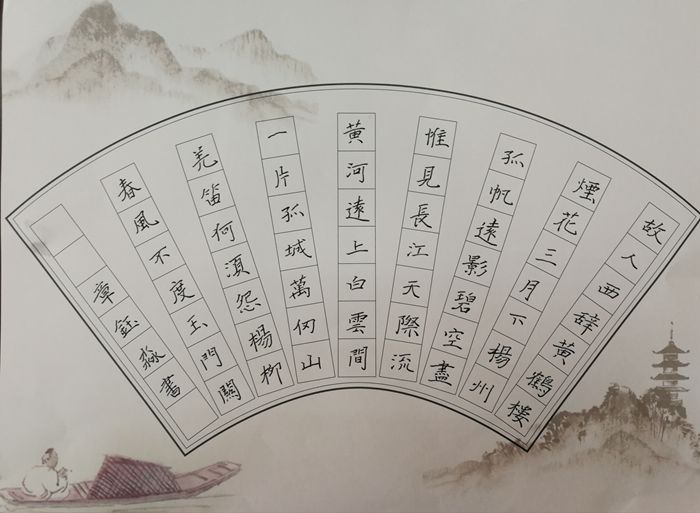 故人西辞黄鶴楼
煙花三月下揚州
孤帆遠影碧空盡
惟見長江天際流
黃河遠上白雲間
一片孤城萬仞山
羌笛何須怨楊柳
春風不度玉門關
章鈺淼書